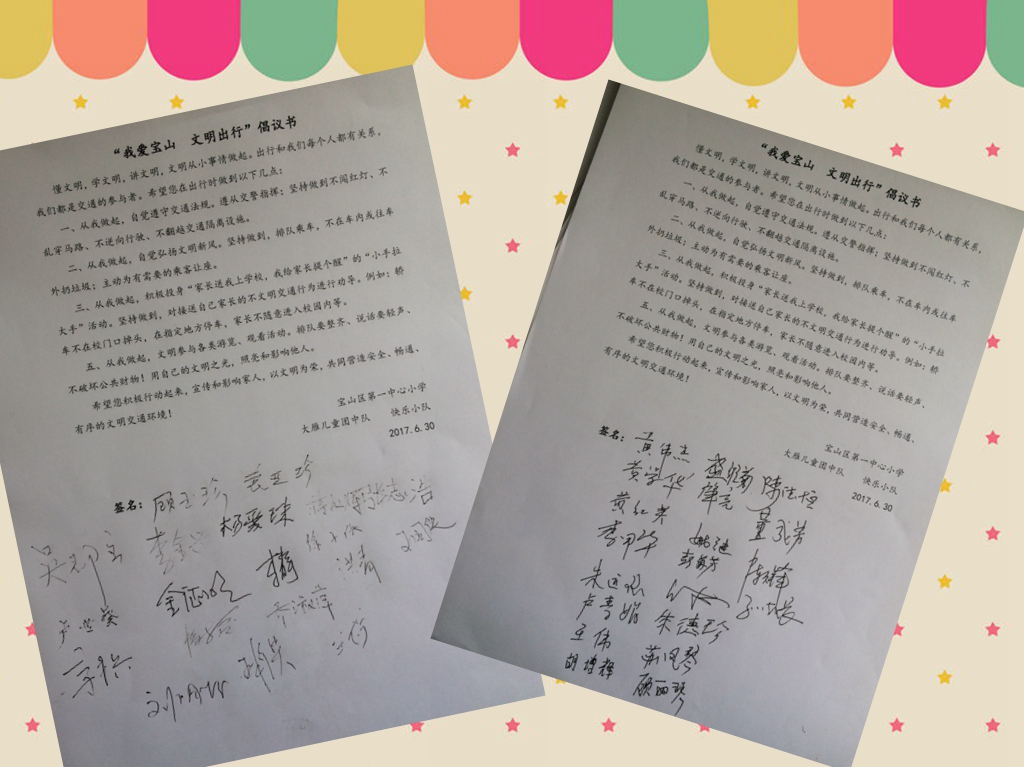 “我爱宝山 文明出行”倡议书
懂文明，学文明，讲文明，文明从小事情做起。出行和我们每个人都有关系，
我们都是交通的参与者。希望您在出行时做到以下几点：
一、从我做起，自觉遵守交通法规。遵从交警指挥；坚持做到不闯红灯、不
乱穿马路、不逆向行驶、不翻越交通隔离设施。
二、从我做起，自觉弘扬文明新风。坚持做到，排队乘车，不在车内或往车
外扔垃圾；主动为有需要的乘客让座。
三、从我做起，积极投身“家长送我上学校，我给家长提个醒”的“小手拉
大手”活动。坚持做到，对接送自己家长的不文明交通行为进行劝导。例如：轿
车不在校门口掉头，在指定地方停车，家长不随意进入校园内等。
五、从我做起，文明参与各类游览、观看活动。排队要整齐、说话要轻声、
不破坏公共财物！用自己的文明之光，照亮和影响他人。
希望您积极行动起来，宣传和影响家人，以文明为荣，共同营造安全、畅通、
有序的文明交通环境！
宝山区第一中心小学
大雁儿童团中队 快乐小队
2017.6.30
签名：顾玉珍
杨爱珠 张志治
“我爱宝山 文明出行”倡议书
懂文明，学文明，讲文明，文明从小事情做起。出行和我们每个人都有关系，
我们都是交通的参与者。希望您在出行时做到以下几点：
一、从我做起，自觉遵守交通法规。遵从交警指挥；坚持做到不闯红灯、不
乱穿马路、不逆向行驶、不翻越交通隔离设施。
二、从我做起，自觉弘扬文明新风。坚持做到，排队乘车，不在车内或往车
外扔垃圾；主动为有需要的乘客让座。
三、从我做起，积极投身“家长送我上学校，我给家长提个醒”的“小手拉
大手”活动。坚持做到，对接送自己家长的不文明交通行为进行劝导。例如：轿
车不在校门口掉头，在指定地方停车，家长不随意进入校园内等。
五、从我做起，文明参与各类游览、观看活动。排队要整齐、说话要轻声、
不破坏公共财物！用自己的文明之光，照亮和影响他人。
希望您积极行动起来，宣传和影响家人，以文明为荣，共同营造安全、畅通、
有序的文明交通环境！
宝山区第一中心小学
大雁儿童团中队 快乐小队
2017.6.30
签名：黄伟杰
黄学华
黄红英
李甲华
卢春娟 朱德珍
王伟 苏凤琴
胡增辉 顾丽琴